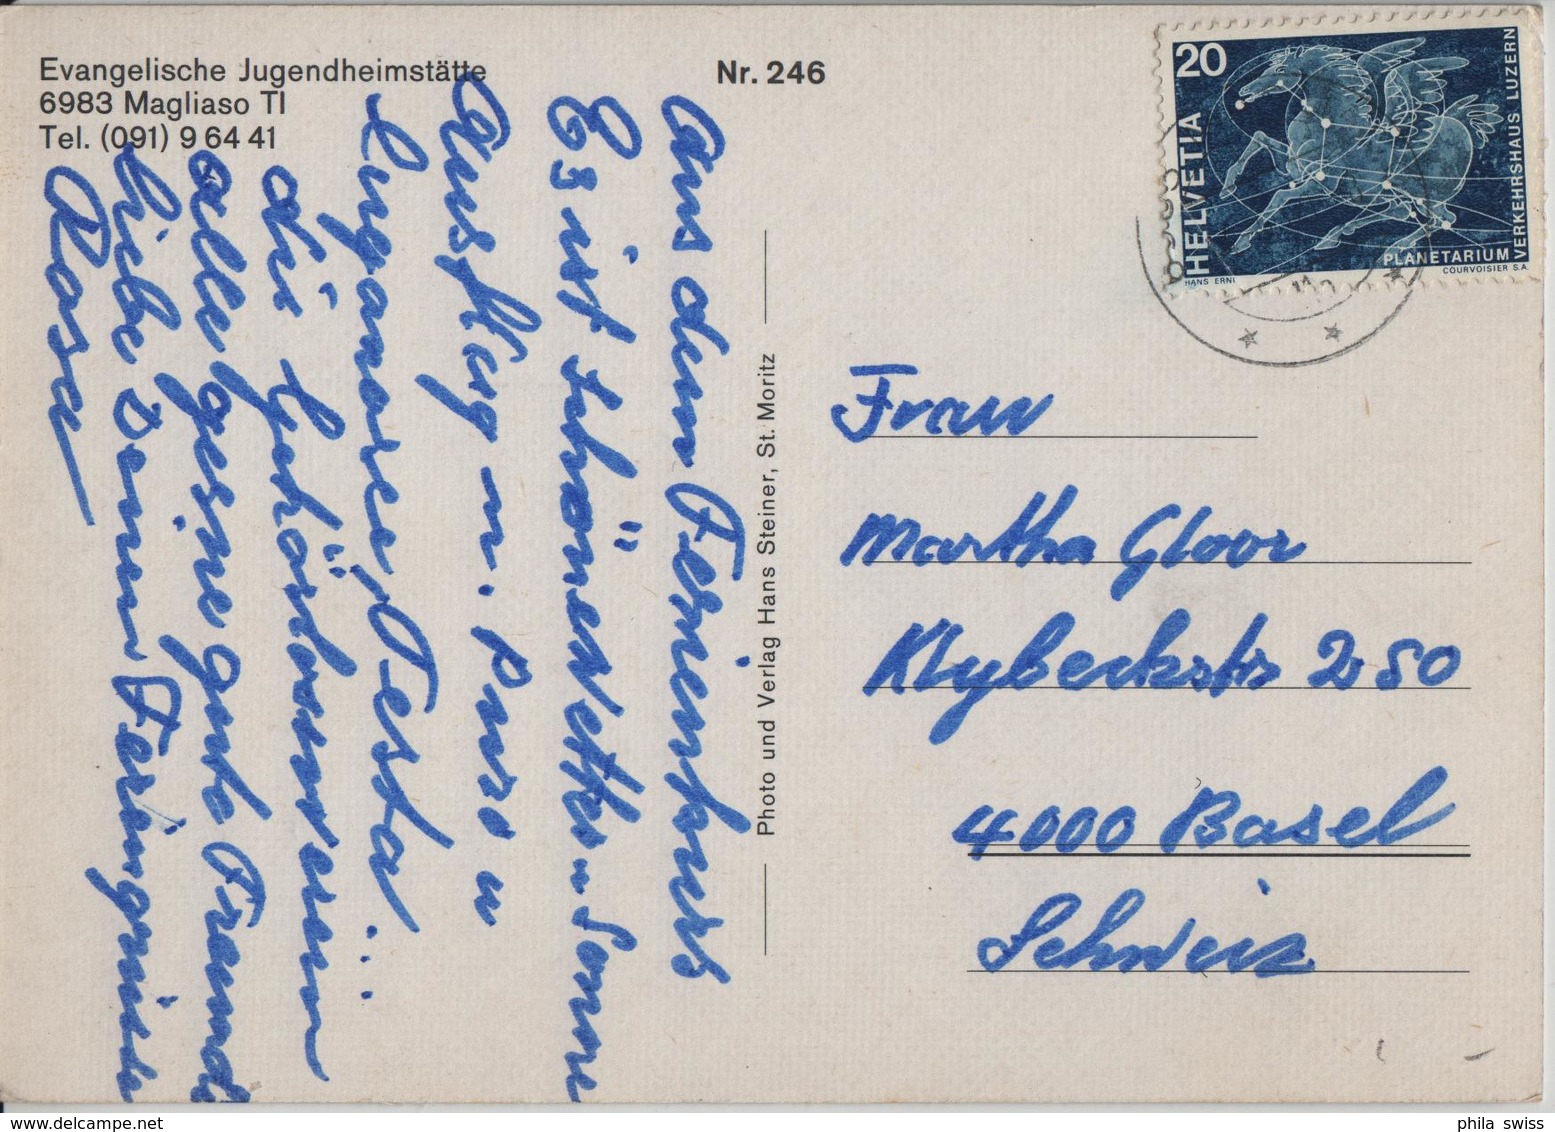 Evangelische Jugendheimstätte
6983 Magliaso TI
Tel. (091) 9 64 41
Nr. 246
20
HELVETIA
PLANETARIUM
VERKEHRSHAUS LUZERN
HANS ERNI
COURVOISIER S.A.
Aus dem Ferienkurs
Es ist schönes Wetter u Sonne
Ausflug n. Puro u
Luganersee, Tessa...
die
alle gerne gute Freunde
Liebe Ferien
Rosa
Photo und Verlag Hans Steiner, St. Moritz
Frau
Martha Gloor
Klybeckstr 250
4000 Basel
Schweiz
phila swiss